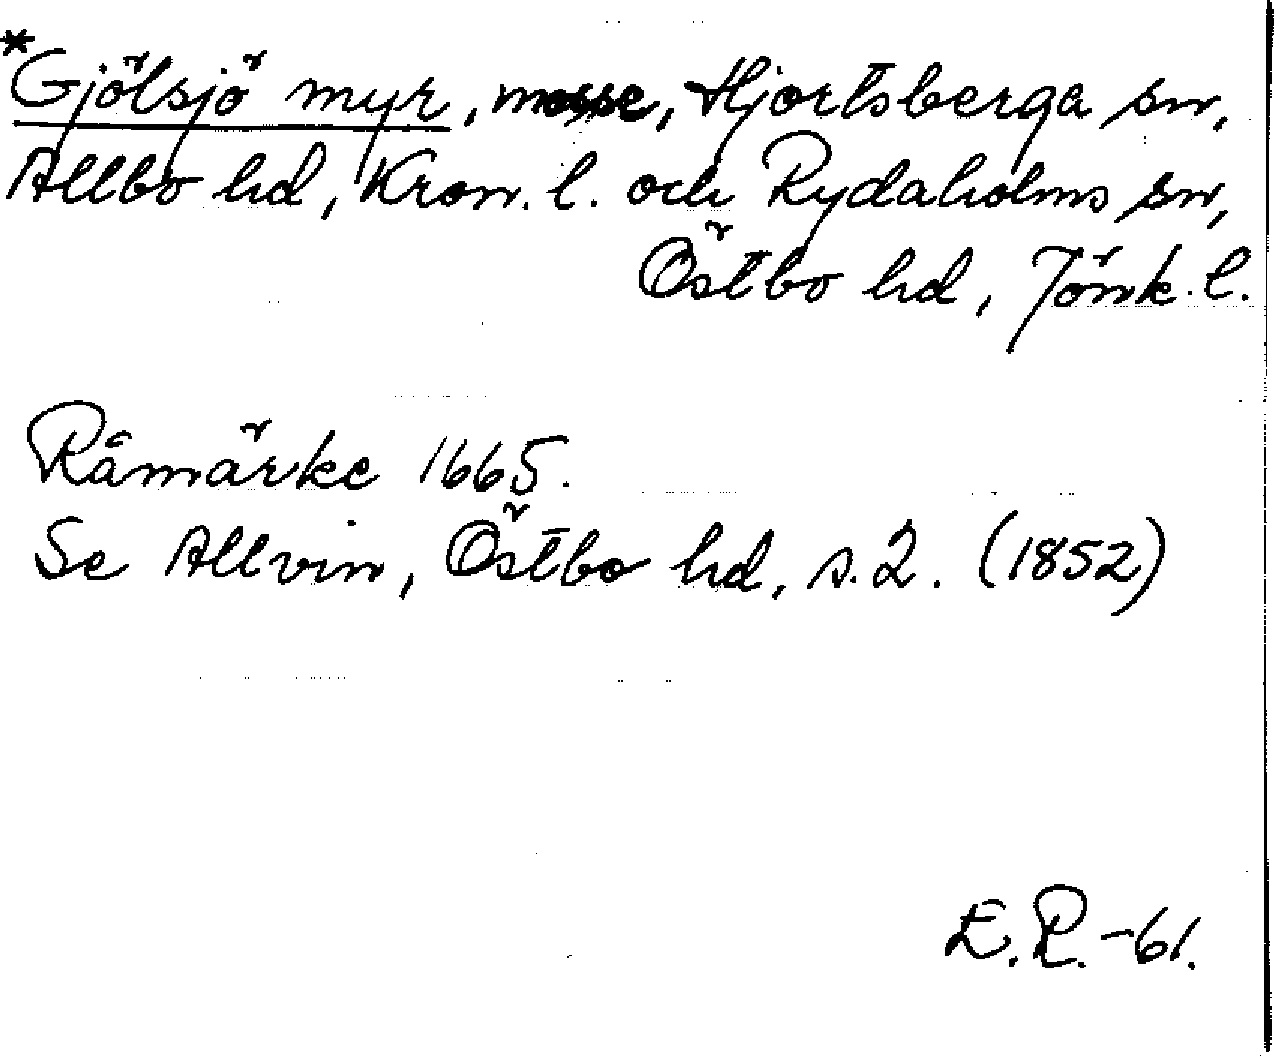 *Gjölsjö myr, mosse, Hjortsberga sn,
Allbo hd, Kron. l. och Rydaholms sn,
Östbo hd, Jönk. l.
Råmärke 1665.
Se Allvin, Östbo hd, s. 2. (1852)
E. R. -61.